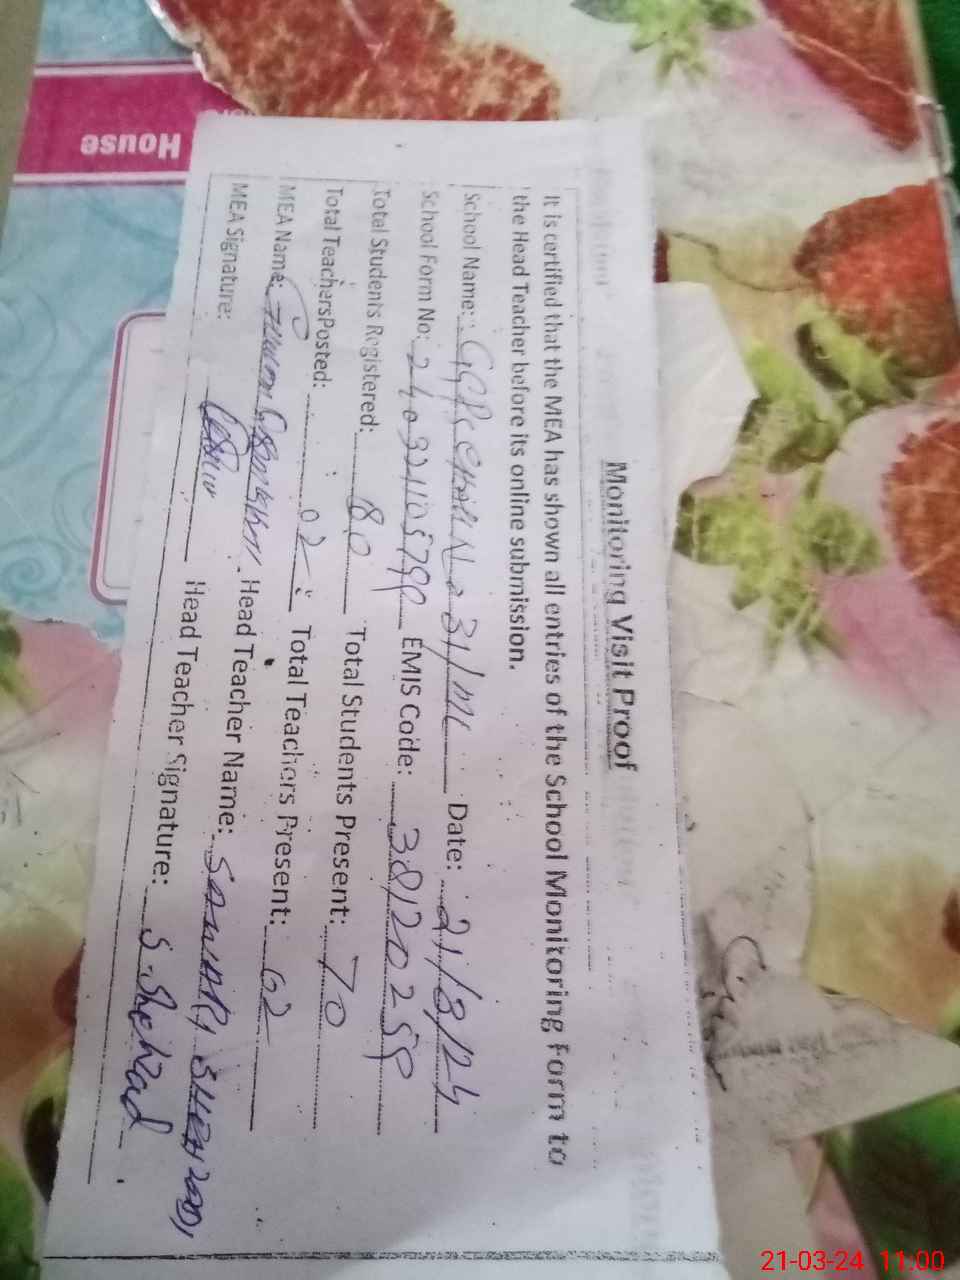 House
Monitoring Visit Proof
It is certified that the MEA has shown all entries of the School Monitoring Form to
the Head Teacher before its online submission.
School Name: 31/ML Date: 21/3/24
School Form No: EMIS Code: 38120259
Total Students Registered: 80 Total Students Present: 70
Total Teachers Posted: 02 Total Teachers Present: 02
MEA Name: Head Teacher Name:
MEA Signature: Head Teacher Signature: S.Shehzad
21-03-24 11:00